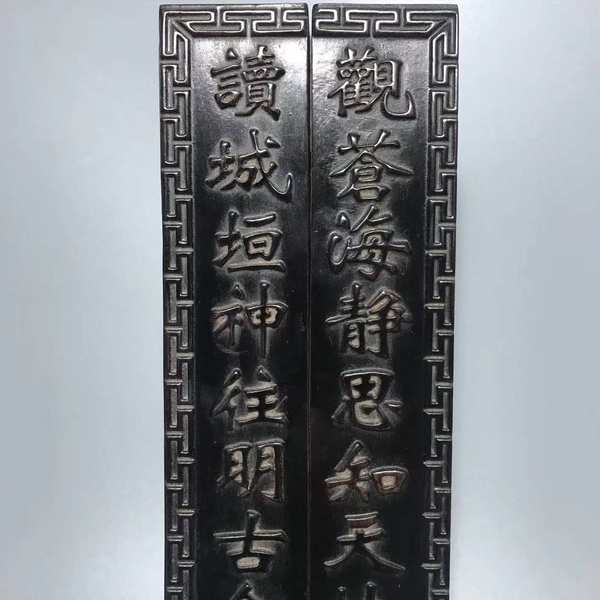 觀蒼海静思知天
讀城垣神往明古